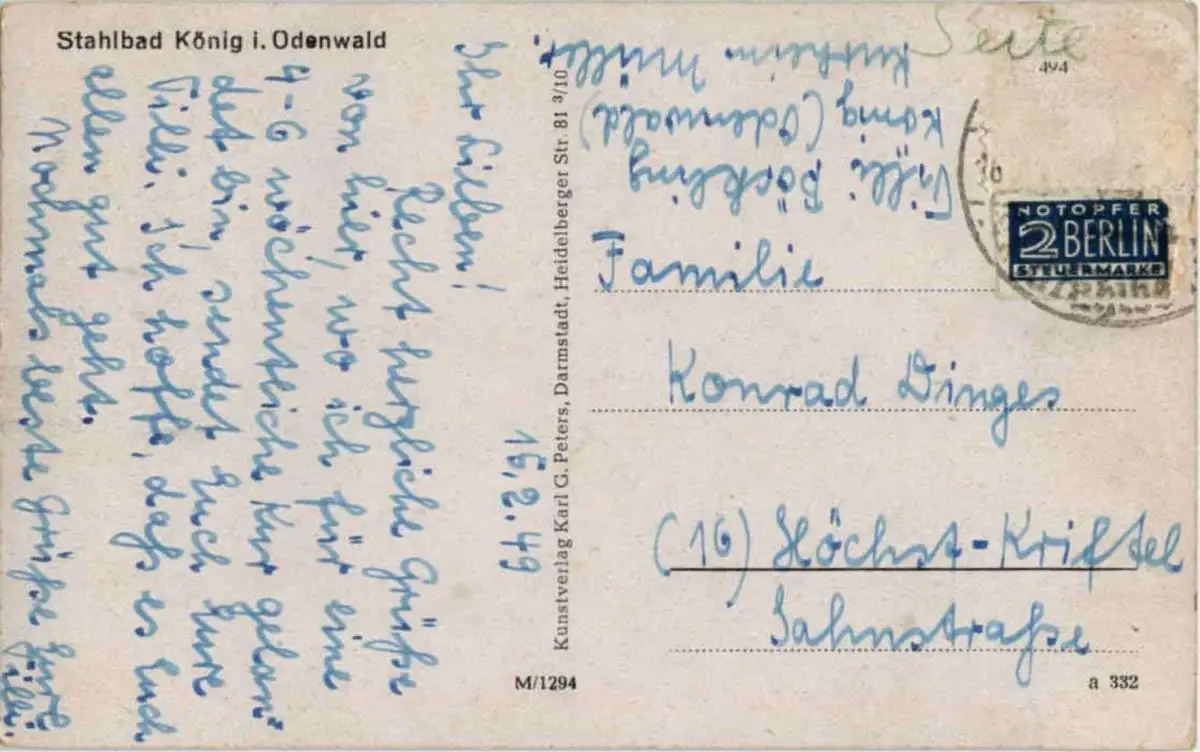 Stahlbad König i. Odenwald
15.2.49
Ihr Lieben!
Recht herzliche Grüße
von hier, wo ich für eine
4-6 wöchentliche Kur gelan-
det bin, sendet Euch Eure
Tilli. Ich hoffe, daß es Euch
allen gut geht.
Nochmals beste Grüße Eure
Tilli.
Kunstverlag Karl G. Peters, Darmstadt, Heidelberger Str. 81 3/10
M/1294
Seite
494
NOTOPFER
2 BERLIN
STEUERMARKE
Tilli
König (Odenwald)
Kurheim Müller.
Familie
Konrad Dinges
(16) Höchst-Kriftel
Jahnstraße
a 332